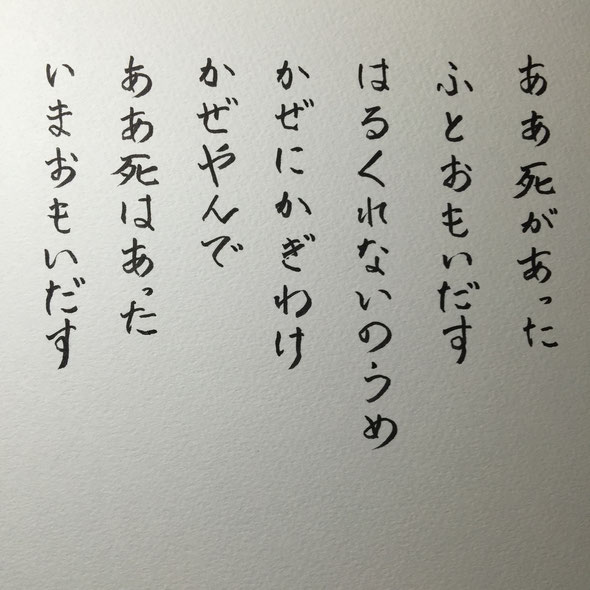 ああ死があった
ふとおもいだす
はるくれないのうめ
かぜにかぎわけ
かぜやんで
ああ死はあった
いまおもいだす